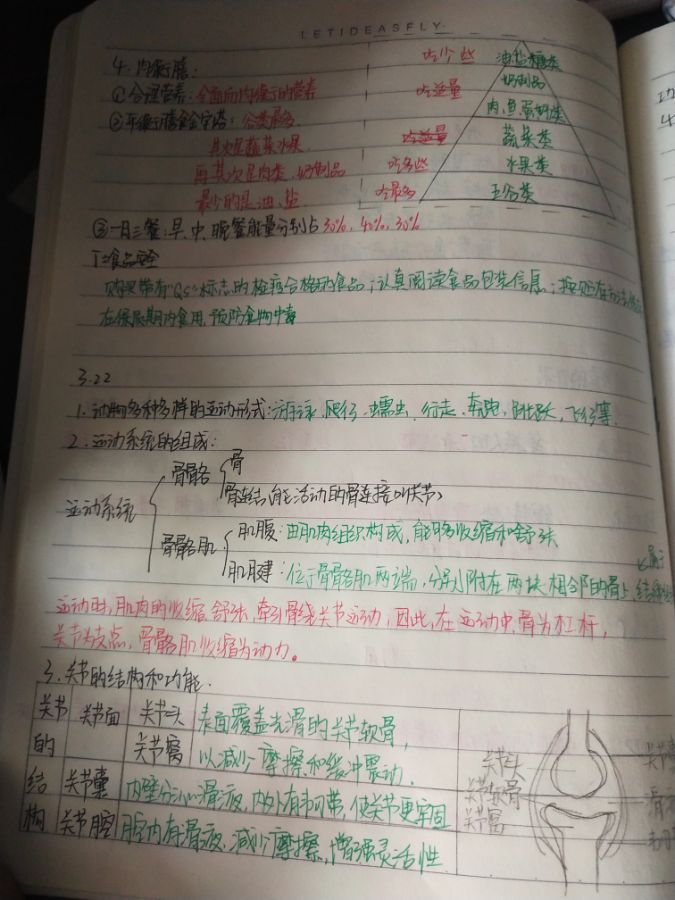 LETIDEASFLY.
4. 均衡膳:
吃少些 油盐糖类
①合理营养:全面而均衡的营养
吃适量 奶制品
②平衡膳食宝塔:谷类最多
肉、鱼、蛋奶类
其次是蔬菜水果
吃适量 蔬菜类
再其次是肉类、奶制品
吃多些 水果类
最少的是油、盐
吃最多 五谷类
③一日三餐:早、中、晚餐能量分别占30%, 40%, 30%
食品安全
购买带有"QS"标志的检疫合格的食品;认真阅读食品包装信息;按贮存方法
在保质期内食用,预防食物中毒
3.22
1. 动物多种多样的运动形式:游泳、爬行、蠕虫、行走、奔跑、跳跃、飞行等.
2. 运动系统的组成:
骨骼 骨
骨连结(能活动的骨连接叫关节)
运动系统
骨骼肌 肌腹:由肌肉组织构成,能够收缩和舒张
属于
肌腱:位于骨骼肌两端,分别附在两块相邻的骨上,结缔
运动时,肌肉的收缩、舒张,牵引骨绕关节运动,因此,在运动中,骨为杠杆,
关节为支点,骨骼肌收缩为动力。
3. 关节的结构和功能.
关节的结构
关节面 关节头 关节窝 表面覆盖光滑的关节软骨,
以减少摩擦和缓冲震动.
关节囊 内壁分泌滑液,内外有韧带,使关节更牢固
关节腔 腔内有滑液,减少摩擦,增强灵活性
关节头 关节
关节软骨 滑
关节窝 韧